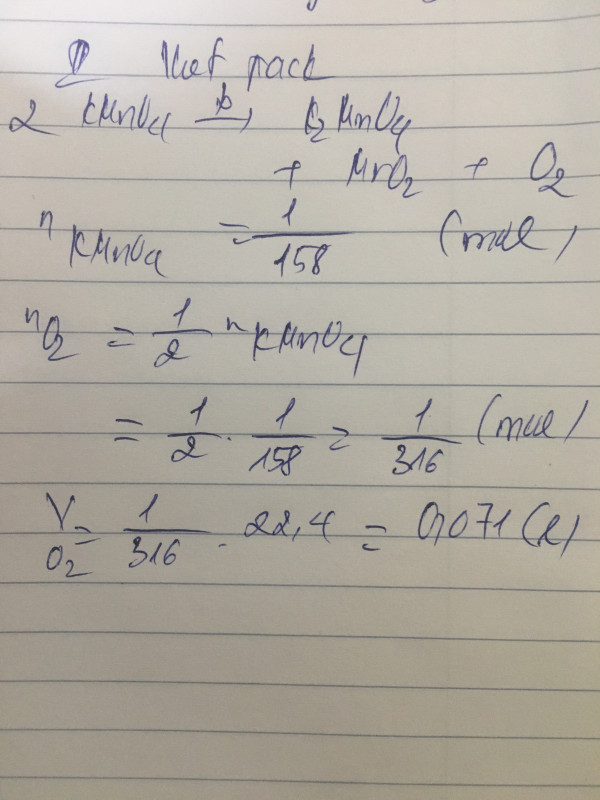 2 KMnO4 t° → K2MnO4
+ MnO2 + O2
nKMnO4 = 1/158 (mol)
nO2 = 1/2 nKMnO4
= 1/2 . 1/158 = 1/316 (mol)
VO2 = 1/316 . 22,4 = 0,071 (l)